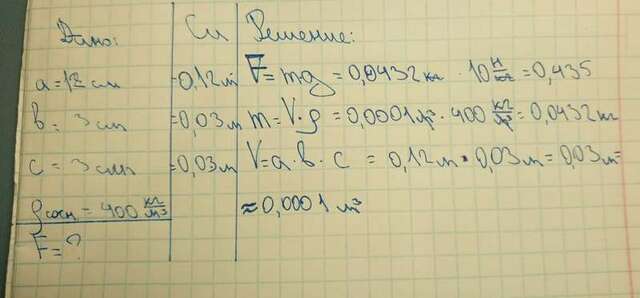 Дано:
а=12 см
в= 3 см
с= 3 см
ρсосн = 400 кг/м³
F=?
Си
=0,12м
=0,03м
=0,03м
Решение:
F=mg=0,0432кг · 10 Н/кг=0,435
m=V·ρ=0,0001м³·400 кг/м³=0,0432кг
V=а·в·с = 0,12м·0,03м=0,03м=
≈0,0001 м³